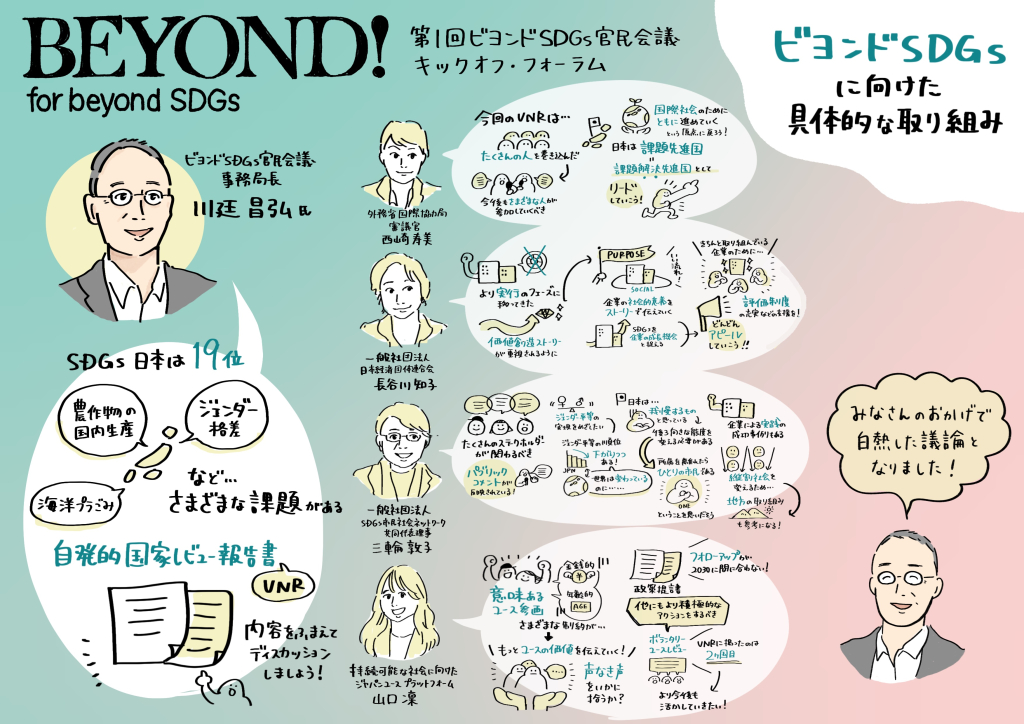 BEYOND!
for beyond SDGs
第1回ビヨンドSDGs官民会議
キックオフ・フォーラム
ビヨンドSDGs
に向けた
具体的な取り組み
ビヨンドSDGs官民会議
事務局長
川廷 昌弘氏
SDGs 日本は19位
農作物の
国内生産
ジェンダー
格差
海洋プラごみ
など…
さまざまな課題がある
自発的国家レビュー報告書
VNR
内容をふまえて
ディスカッション
しましょう!
外務省国際協力局
審議官
西崎寿美
今回のVNRは…
たくさんの人を巻き込んだ
今後もさまざまな人が
参加していくべき
国際社会のために
ともに進めていく
という原点に戻ろう!
日本は 課題先進国
課題解決先進国として
リード
していこう!
一般社団法人
日本経済団体連合会
長谷川知子
より実行のフェーズに
移ってきた
価値創造ストーリー
が重視されるように
PURPOSE
SOCIAL
いい流れ!
企業の社会的意義を
ストーリーで伝えていく
SDGsを
企業の成長機会
と捉える
きちんと取り組んでいる
企業のために…
評価制度
の充実などの支援を!
どんどん
アピール
していこう!!
一般社団法人
SDGs市民社会ネットワーク
共同代表理事
三輪敦子
たくさんのステークホルダー
が関わるべき
パブリック
コメントが
反映されている!
ジェンダー平等の
実現をめざしたい
ジェンダー平等の順位
下がりつつ
ある!
JPN
世界は変わっている
のに……
日本は…
我慢するもの
と思っている
後ろ向きな態度を
変える必要がある
ひとりの市民である
ONE
ということを思いだそう
企業による実践の
成功事例もある
縦割社会を
変えるため…
地方の取り組み
も参考になる!
持続可能な社会に向けた
ジャパンユースプラットフォーム
山口 凜
意味ある
ユース参画
金銭的
¥
年齢的
AGE
さまざまな制約が…
もっとユースの価値を伝えていく!
声なき声
をいかに
拾うか?
政策提言
フォローアップが
2030に間に合わない!
他にもより積極的な
アクションをするべき
ボランタリー
ユースレビュー
VNRに載ったのは
2ヵ国目
より今後も
活かしていきたい!
みなさんのおかげで
白熱した議論と
なりました!